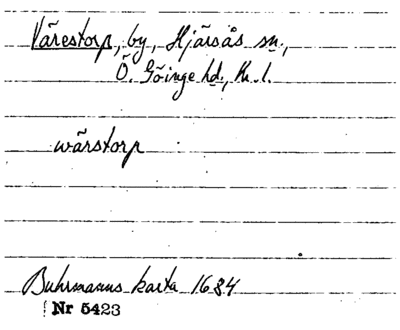 Värestorp, by, Hjärsås sn.,
Ö. Göinge hd., Kr. l.
wärstorp
Buhrmanns karta 1684
Nr 5423